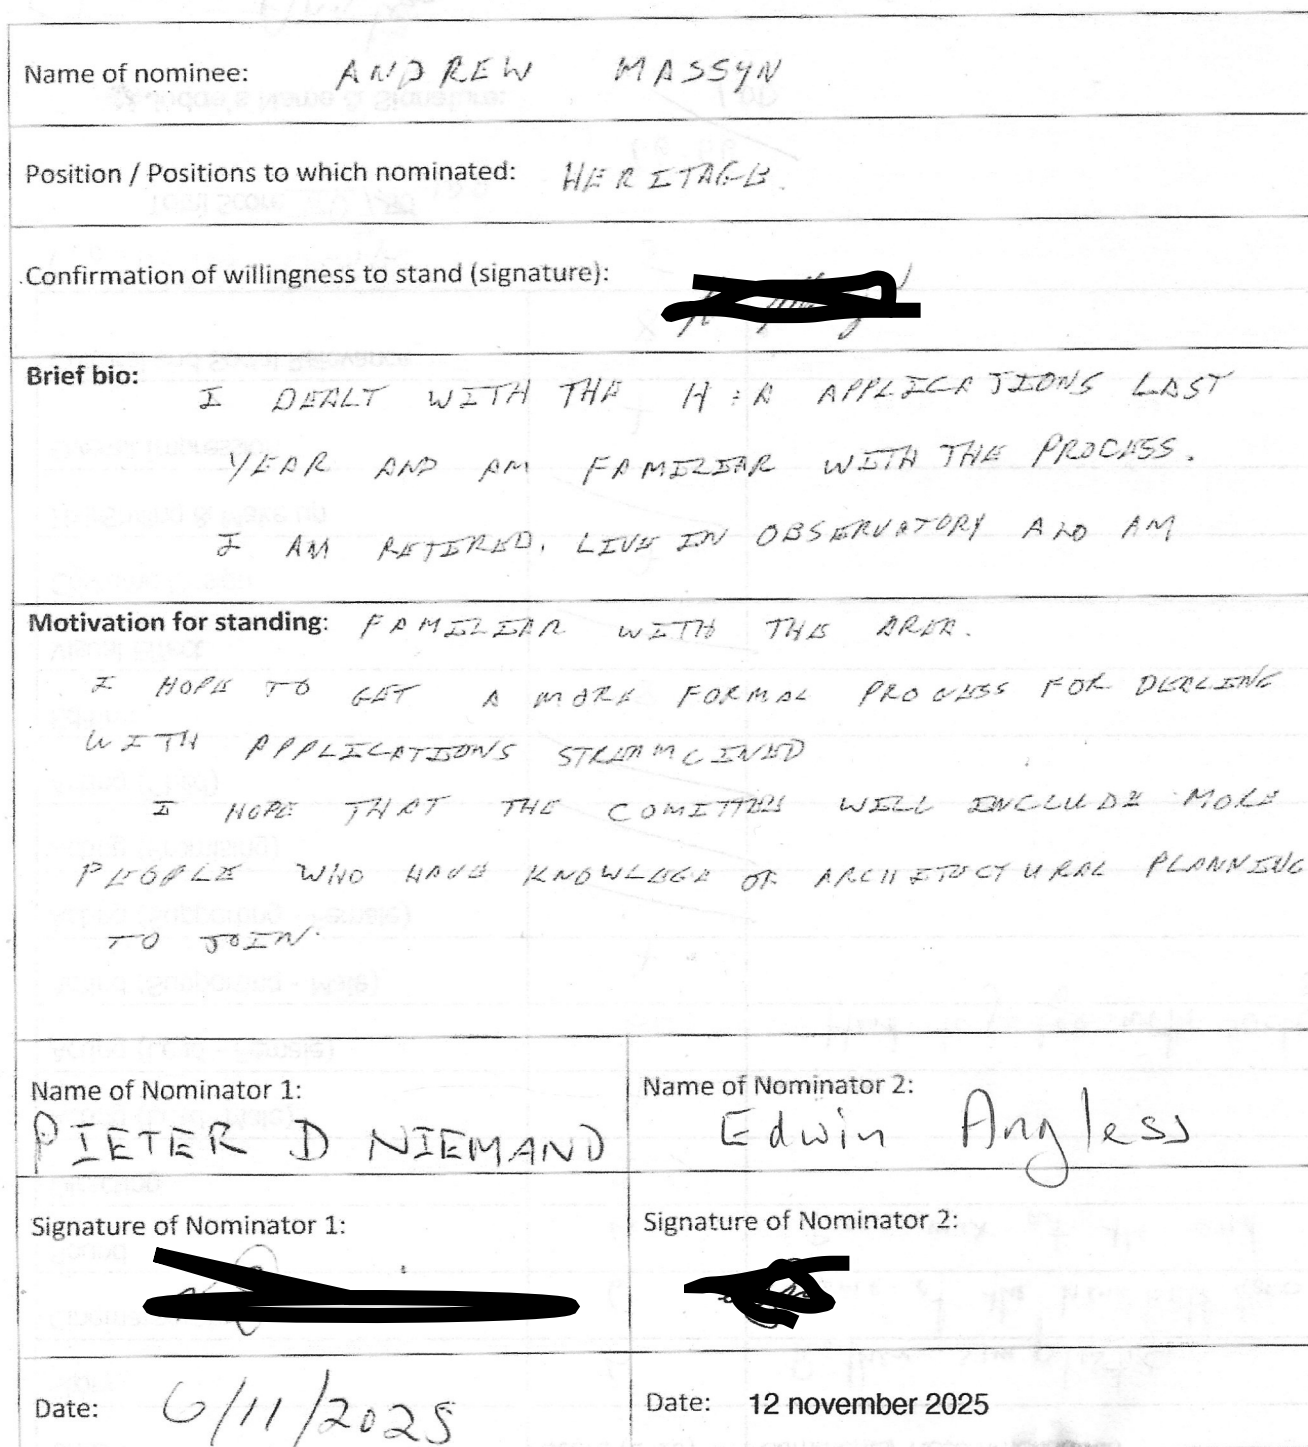 Name of nominee: ANDREW MASSYN
Position / Positions to which nominated: HERITAGE.
Confirmation of willingness to stand (signature):
Brief bio:
I DEALT WITH THE H : A APPLICATIONS LAST
YEAR AND AM FAMILIAR WITH THE PROCESS.
I AM RETIRED. LIVE IN OBSERVATORY AND AM
Motivation for standing: FAMILIAR WITH THE AREA.
I HOPE TO GET A MORE FORMAL PROCESS FOR DEALING
WITH APPLICATIONS STREAMLINED
I HOPE THAT THE COMITTEE WILL INCLUDE MORE
PEOPLE WHO HAVE KNOWLEGE OF ARCHITECTURAL PLANNING
TO JOIN.
Name of Nominator 1: Name of Nominator 2:
PIETER D NIEMAND Edwin Angless
Signature of Nominator 1: Signature of Nominator 2:
Date: 6/11/2025 Date: 12 november 2025